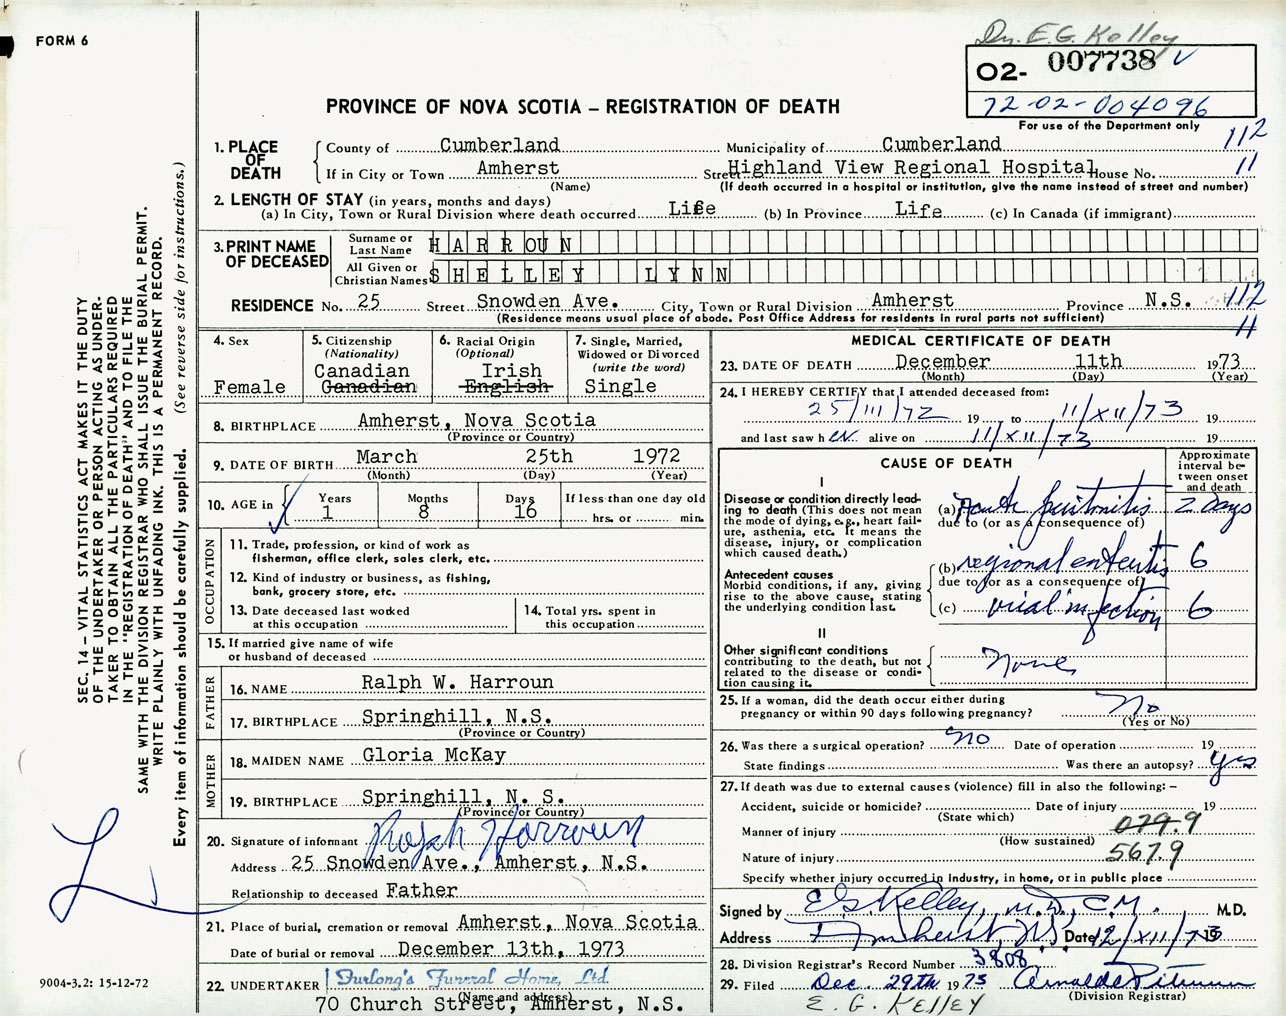 FORM 6
Dr. E.G. Kelley
02- 007738
72-02-004096
For use of the Department only
PROVINCE OF NOVA SCOTIA – REGISTRATION OF DEATH
1. PLACE OF DEATH
County of Cumberland Municipality of Cumberland 112
If in City or Town Amherst Street Highland View Regional Hospital House No. 11
(Name) (If death occurred in a hospital or institution, give the name instead of street and number)
2. LENGTH OF STAY (in years, months and days)
(a) In City, Town or Rural Division where death occurred Life (b) In Province Life (c) In Canada (if immigrant)
3. PRINT NAME OF DECEASED
Surname or Last Name HARROUN
All Given or Christian Names SHELLEY LYNN
RESIDENCE No. 25 Street Snowden Ave. City, Town or Rural Division Amherst Province N.S. 112
(Residence means usual place of abode. Post Office Address for residents in rural parts not sufficient) 11
4. Sex
Female
5. Citizenship
(Nationality)
Canadian
Canadian
6. Racial Origin
(Optional)
Irish
English
7. Single, Married,
Widowed or Divorced
(write the word)
Single
8. BIRTHPLACE Amherst, Nova Scotia
(Province or Country)
9. DATE OF BIRTH March 25th 1972
(Month) (Day) (Year)
10. AGE in Years Months Days If less than one day old
1 8 16 hrs. or min.
OCCUPATION
11. Trade, profession, or kind of work as
fisherman, office clerk, sales clerk, etc.
12. Kind of industry or business, as fishing,
bank, grocery store, etc.
13. Date deceased last worked
at this occupation
14. Total yrs. spent in
this occupation
15. If married give name of wife
or husband of deceased
FATHER
16. NAME Ralph W. Harroun
17. BIRTHPLACE Springhill, N.S.
(Province or Country)
MOTHER
18. MAIDEN NAME Gloria McKay
19. BIRTHPLACE Springhill, N. S.
(Province or Country)
20. Signature of informant Ralph Harroun
Address 25 Snowden Ave., Amherst, N.S.
Relationship to deceased Father
21. Place of burial, cremation or removal Amherst, Nova Scotia
Date of burial or removal December 13th, 1973
22. UNDERTAKER Furlong's Funeral Home, Ltd.
(Name and address)
70 Church Street, Amherst, N.S.
MEDICAL CERTIFICATE OF DEATH
23. DATE OF DEATH December 11th 1973
(Month) (Day) (Year)
24. I HEREBY CERTIFY that I attended deceased from:
25/III/72 19 to 11/XII/73 19
and last saw h er alive on 11/XII/73 19
CAUSE OF DEATH
Approximate interval between onset and death
I
Disease or condition directly leading to death (This does not mean the mode of dying, e.g., heart failure, asthenia, etc. It means the disease, injury, or complication which caused death.)
(a) Acute peritonitis 2 days
due to (or as a consequence of)
Antecedent causes
Morbid conditions, if any, giving rise to the above cause, stating the underlying condition last.
(b) regional enteritis 6
due to (or as a consequence of)
(c) viral infection 6
II
Other significant conditions
contributing to the death, but not related to the disease or condition causing it.
None
25. If a woman, did the death occur either during
pregnancy or within 90 days following pregnancy? No
(Yes or No)
26. Was there a surgical operation? No Date of operation 19
State findings Was there an autopsy? yes
27. If death was due to external causes (violence) fill in also the following: –
Accident, suicide or homicide? Date of injury 19
(State which)
Manner of injury 079.9
(How sustained)
Nature of injury 567.9
Specify whether injury occurred in Industry, in home, or in public place
Signed by EG Kelley, M.D., C.M. M.D.
Address Amherst, NS Date 12/XII/73 19
28. Division Registrar's Record Number 3808
29. Filed Dec. 29th 1973
(Division Registrar)
E. G. KELLEY
SEC. 14 – VITAL STATISTICS ACT MAKES IT THE DUTY
OF THE UNDERTAKER OR PERSON ACTING AS UNDER-
TAKER TO OBTAIN ALL THE PARTICULARS REQUIRED
IN THE "REGISTRATION OF DEATH" AND TO FILE THE
SAME WITH THE DIVISION REGISTRAR WHO SHALL ISSUE THE BURIAL PERMIT.
WRITE PLAINLY WITH UNFADING INK. THIS IS A PERMANENT RECORD.
Every item of information should be carefully supplied. (See reverse side for instructions.)
9004-3.2: 15-12-72